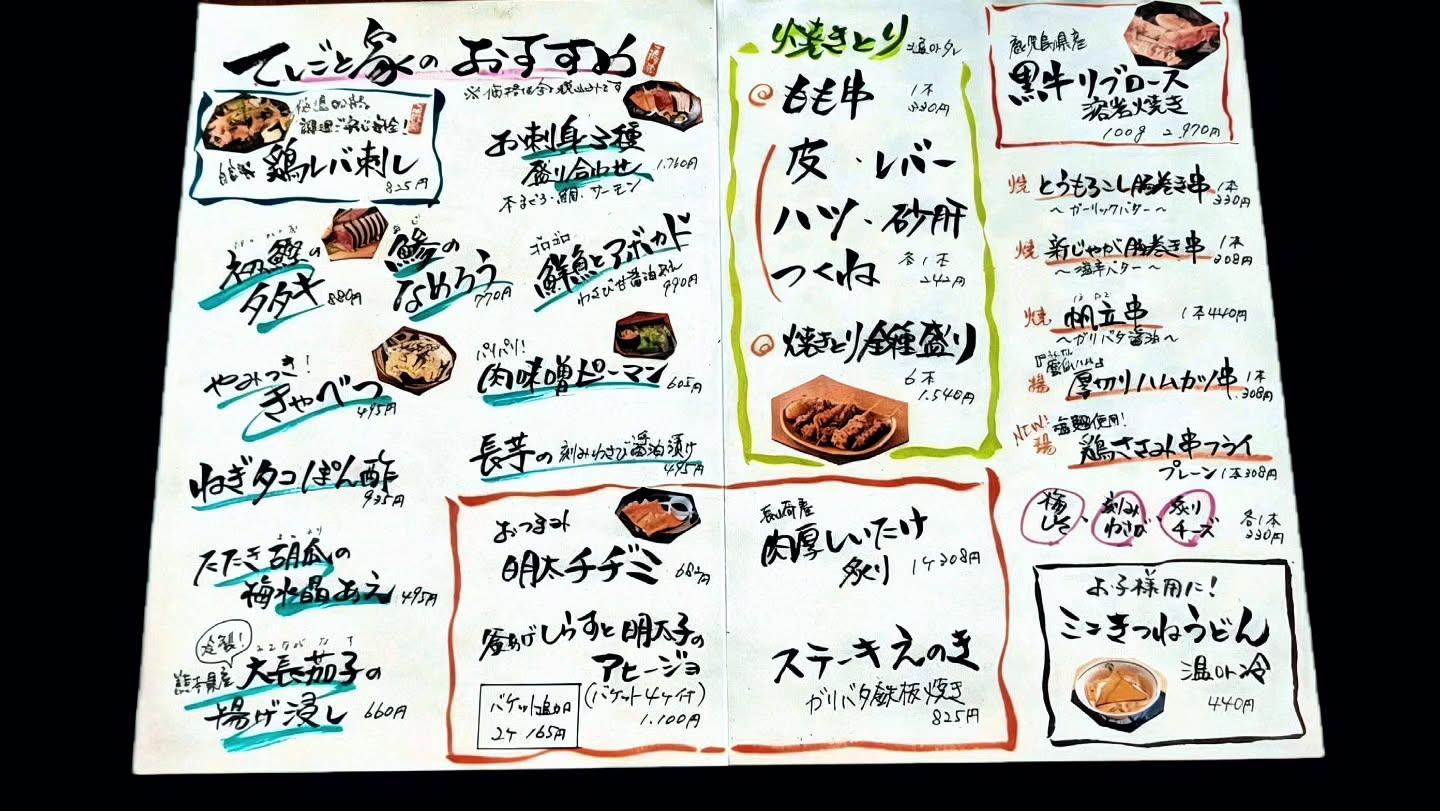 てしごと家のおすすめ
※価格は全て税込みです
低温加熱
調理で安心安全!
自家製 鶏レバ刺し
825円
お刺身3種
盛り合わせ 1.760円
本まぐろ・鯛・サーモン
初鰹の
タタキ 880円
鯵の
なめろう 770円
ゴロゴロ
鮮魚とアボカド
わさび甘醤油あえ 990円
やみつき!
きゃべつ
495円
パリパリ!
肉味噌ピーマン 605円
ねぎタコぽん酢
935円
長芋の刻みわさび醤油漬け
495円
たたき胡瓜の
梅水晶あえ 495円
冷製!
みとながなす
熊本県産 大長茄子の
揚げ浸し 660円
おつまみ
明太チヂミ 682円
釜あげしらすと明太子の
アヒージョ
(バケット4ケ付)
1.100円
バケット追加
2ケ 165円
長崎産
肉厚しいたけ
炙り 1ケ308円
ステーキえのき
ガリバタ鉄板焼き
825円
焼きとり 塩orタレ
もも串 1本
330円
皮・レバー
ハツ・砂肝
つくね 各1本
242円
焼きとり全種盛り
6本
1.540円
鹿児島県産
黒牛リブロース
溶岩焼き
100g 2.970円
焼 とうもろこし豚巻き串 1本
330円
～ガーリックバター～
焼 新じゃが豚巻き串 1本
308円
～塩辛バター～
焼 帆立串 1本440円
～ガリバタ醤油～
揚 厚切りハムカツ串 1本
308円
NEW! 塩麹使用!
揚 鶏ささみ串フライ
プレーン1本308円
梅しそ、刻みわさび、炙りチーズ 各1本
330円
お子様用に!
ミニきつねうどん
温or冷
440円